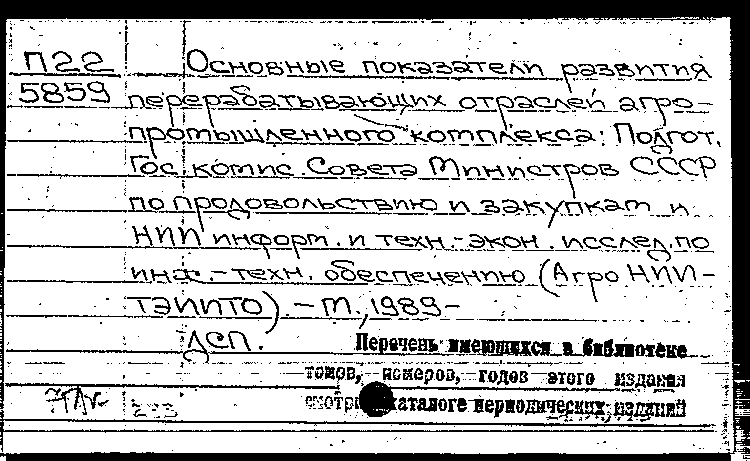 П22
5859
Основные показатели развития
перерабатывающих отраслей агро-
промышленного комплекса: Подгот.
Гос. комис. Совета Министров СССР
по продовольствию и закупкам и
НИИ информ. и техн.-экон. исслед. по
инж.-техн. обеспечению (АгроНИИ-
ТЭИИТО). – М., 1989–
ДСП.
Перечень имеющихся в библиотеке
томов, номеров, годов этого издания
смотри каталоге периодических изданий